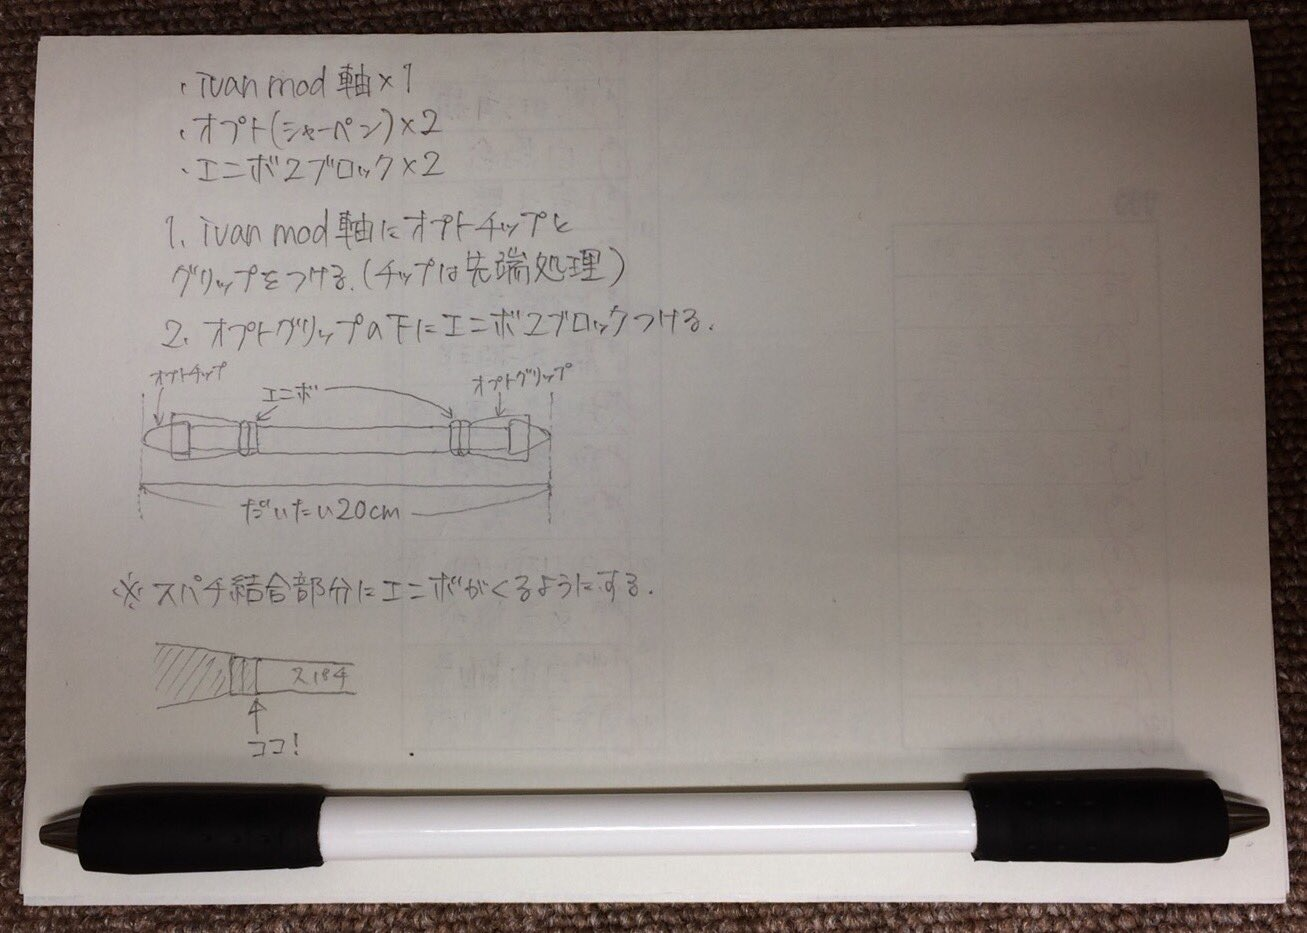 ・ivan mod 軸×1
・オプト(シャーペン)×2
・エニボ2ブロック×2
1. ivan mod 軸にオプトチップと
グリップをつける.(チップは先端処理)
2. オプトグリップの下にエニボ2ブロックつける.
オプトチップ
エニボ
オプトグリップ
だいたい20cm
※スパチ結合部分にエニボがくるようにする.
スパチ
ココ!